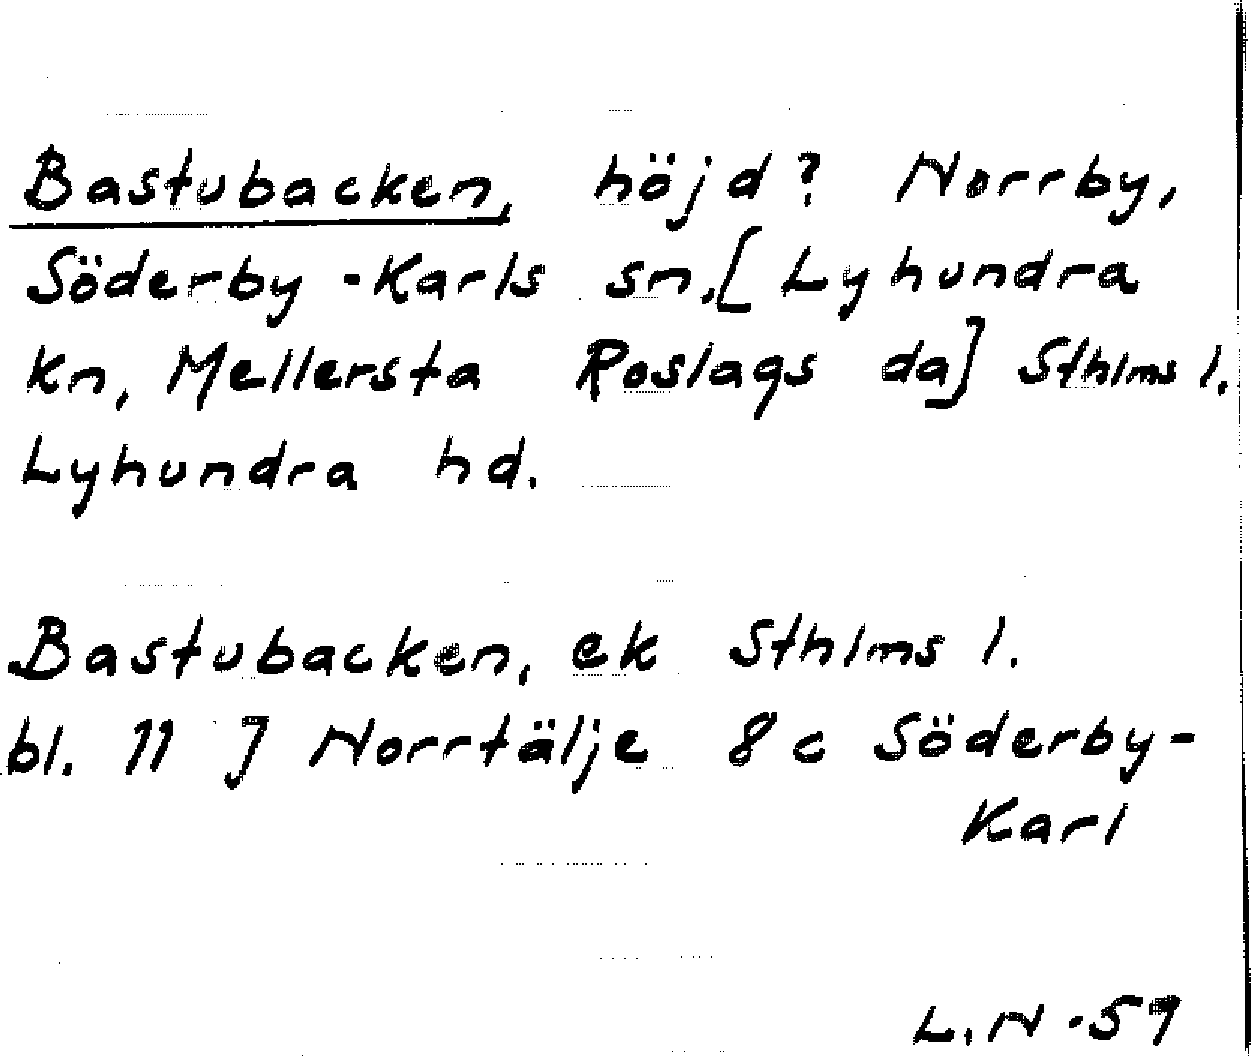 Bastubacken, höjd? Norrby,
Söderby-Karls sn. [Lyhundra
kn, Mellersta Roslags da] Sthlms l.
Lyhundra hd.
Bastubacken, ek Sthlms l.
bl. 11 J Norrtälje 8 c Söderby-
Karl
L.N -59